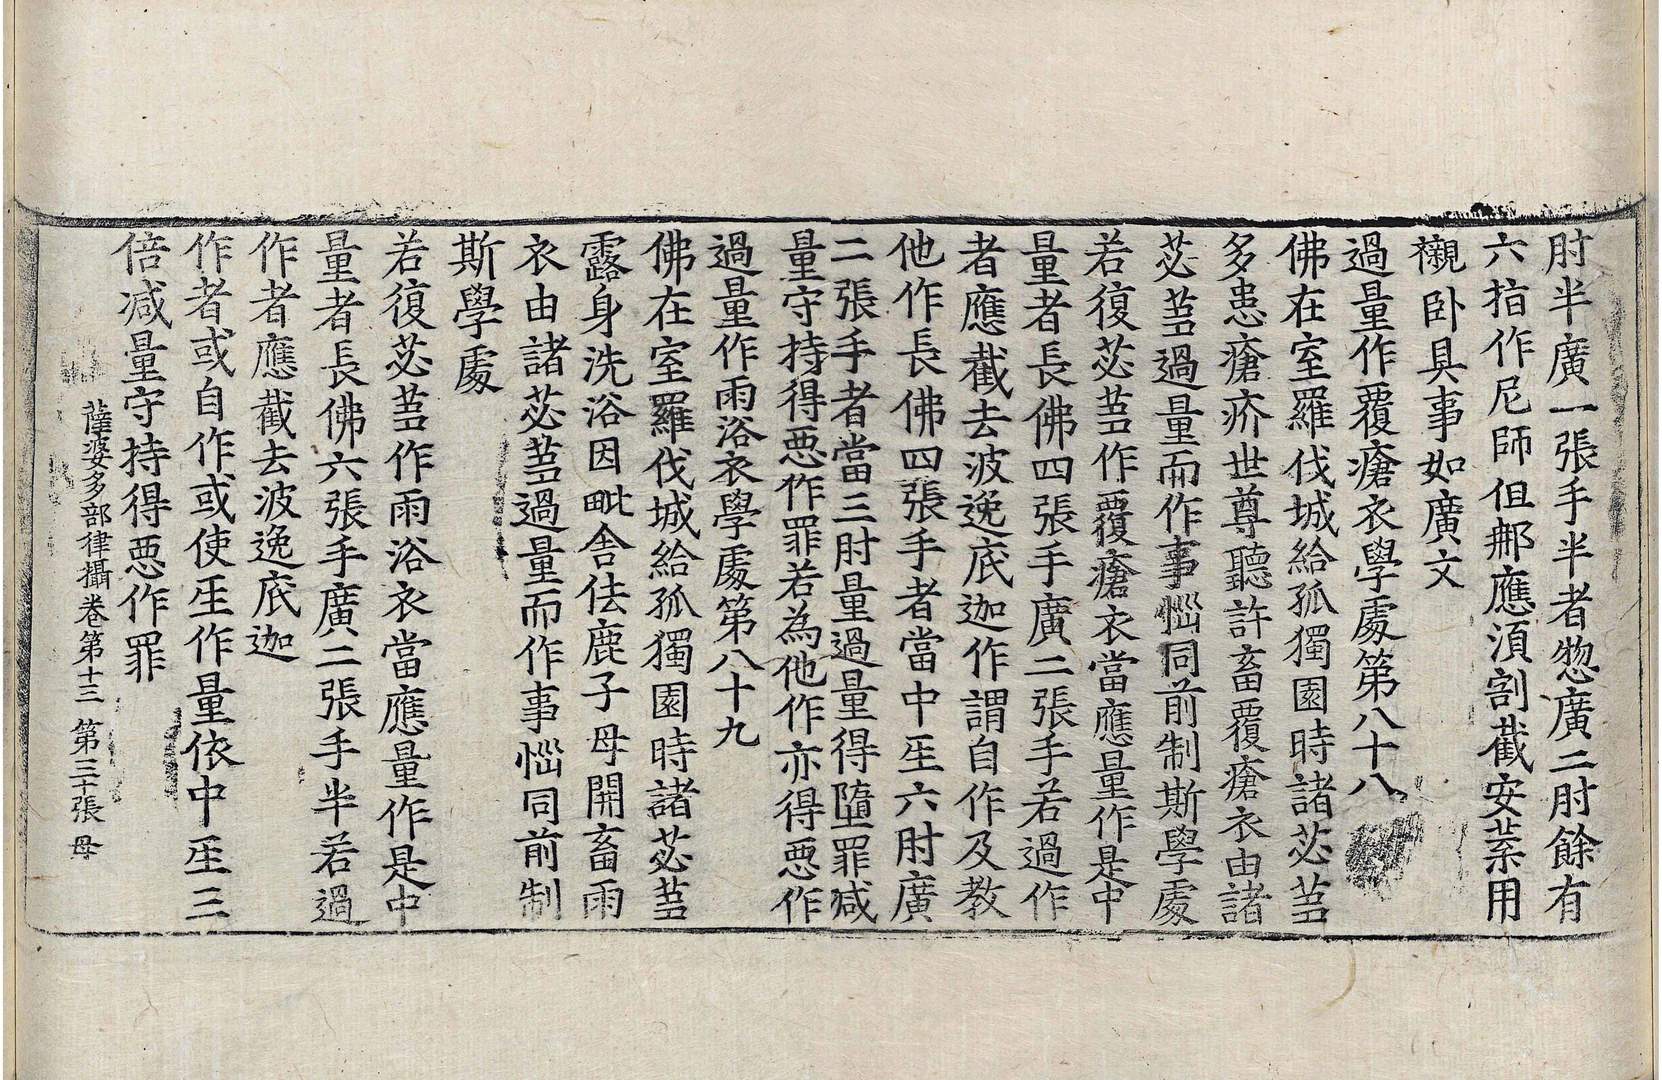 肘半廣一張手半者惣廣二肘餘有
六指作尼師但那應須割截安葉用
襯卧具事如廣文
過量作覆瘡衣學處第八十八
佛在室羅伐城給孤獨園時諸苾芻
多患瘡疥世尊聽許畜覆瘡衣由諸
苾芻過量而作事惱同前制斯學處
若復苾芻作覆瘡衣當應量作是中
量者長佛四張手廣二張手若過作
者應截去波逸底迦作謂自作及教
他作長佛四張手者當中人六肘廣
二張手者當三肘量過量得墮罪減
量守持得惡作罪若為他作亦得惡作
過量作雨浴衣學處第八十九
佛在室羅伐城給孤獨園時諸苾芻
露身洗浴因毗舍佉鹿子母開畜雨
衣由諸苾芻過量而作事惱同前制
斯學處
若復苾芻作雨浴衣當應量作是中
量者長佛六張手廣二張手半若過
作者應截去波逸底迦
作者或自作或使人作量依中人三
倍減量守持得惡作罪
薩婆多部律攝卷第十三 第三十張 母